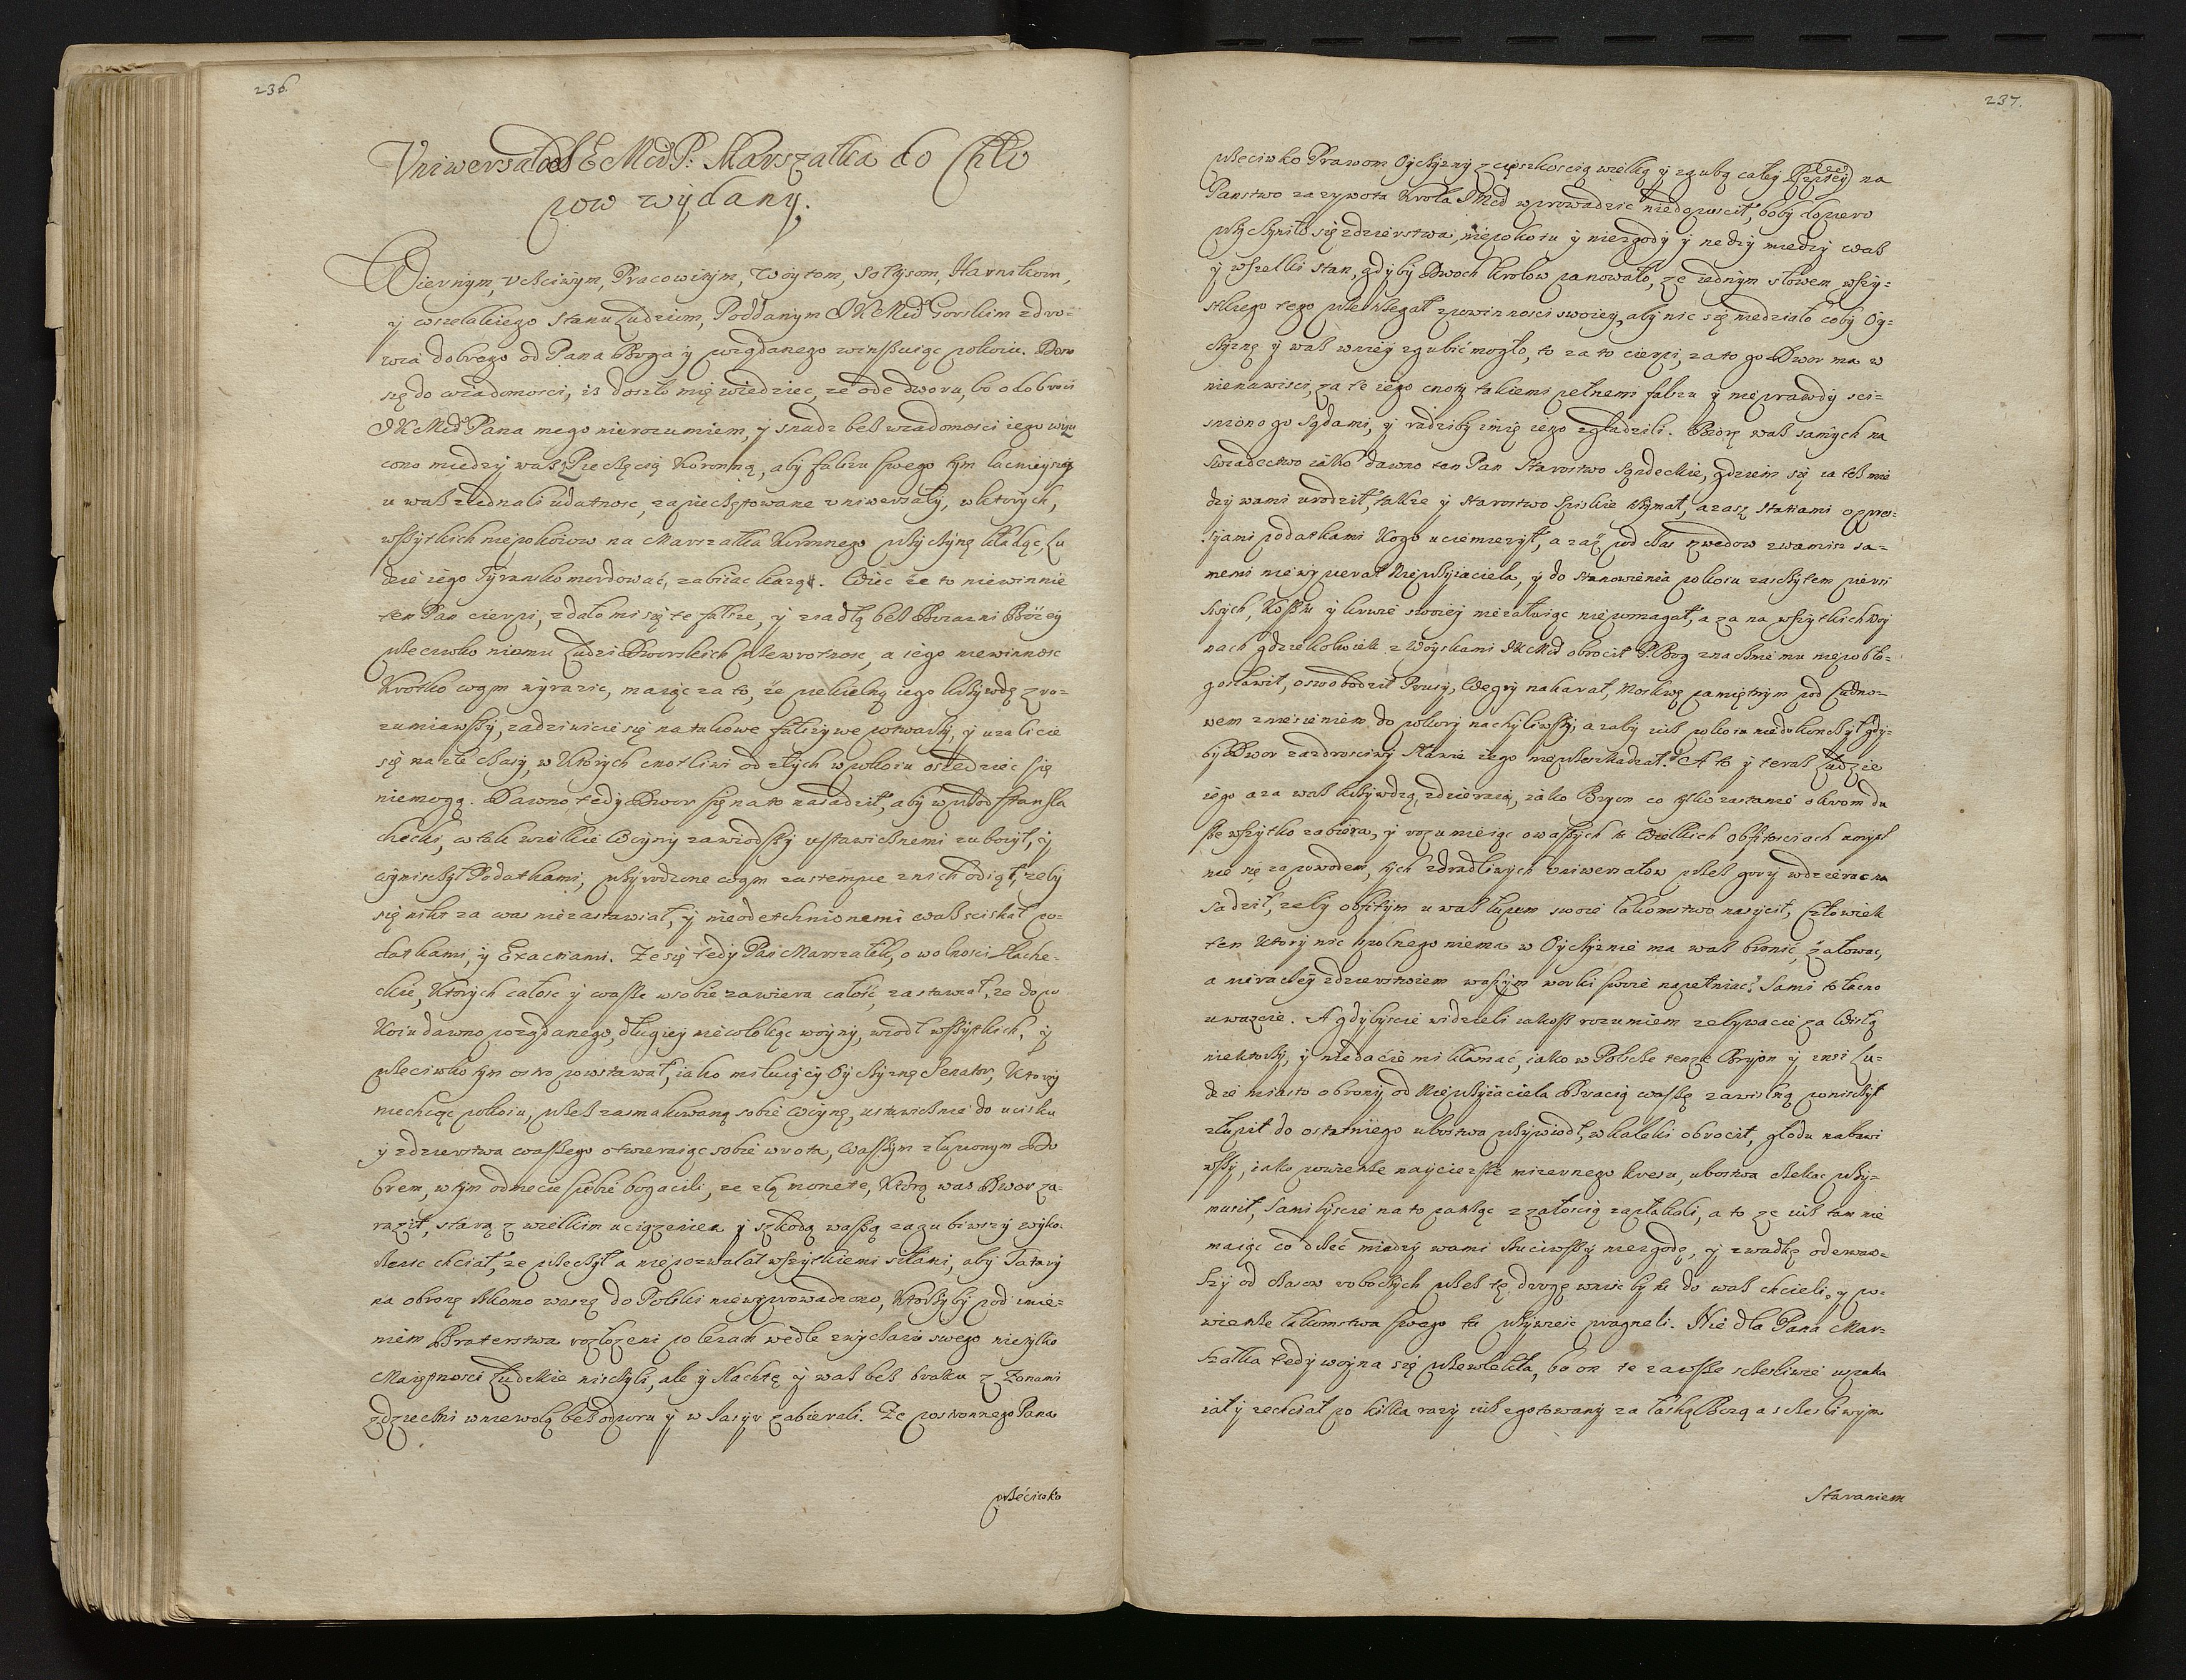 236.
Vniwersał od JE Mcı P: Marszałka do Chło
pow wydany.
Wiernym, Vcściwym, Pracowitym, Woytom, Sołtysom, Harnikom,
y wszelakiego Stanu Ludziom, Poddanym JK Mcı Gorskim zdro-
wia dobrego od Pana Boga y pożądanego winszuiąc pokoiu. Dono
szę do wiadomosci, iż doszło mię wiedzieć, że ode dworu, bo o dobroci
JK Mcı Pana mego nierozumiem, y snadz bez wiadomosci iego wyu
cono miedzy was Pieczęcią Koronną, aby fałszu swego tym łacnieyszą
u was ziednali udatnosc, zapieczętowane vniwersały, w ktorych,
wszytkich niepokoiow na Marszałka Koronnego przyczynę kładąc Lu
dzie iego Tyransko mordować, zabiiac każą. Więc że to niewinnie
ten Pan cierpi, zdało mi się te fałsze, y zradłą bez Boiazni Bożey
przeciwko niemu Ludzi Dworskich przewrotnosc, a iego niewinnosc
Krotko wąm wyrazic, maiąc za to, że piekielną iego krzywdę zro-
zumiawszy, zadziwicie się na takowe fałszywe potwarzy, y użalicie
się na złe czasy, w ktorych cnotliwi od złych w pokoiu osiedziec się
niemogą. Dawno tedy Dwor się na to nasadził, aby w przod stan szla
checki, w tak wielkie Woyny zawiodszy ustawicznemi zubożył, y
wyniszczył Podatkami, przyrodzone wąm zastempce z nich odiął, żeby
się nikt za was niezastawiał, y nieodetchnionemi was sciskał po-
datkami, y Exactiami. Ze się tedy Pan Marszałek, o wolnosci szlache-
ckie, ktorych całosc y wasze w sobie zawiera całość, zastawiał, że do po
koiu dawno pożądanego, długiey niewlokąc woyny, wiodł wszytkich, y
przeciwko tym ostro powstawał, iako miłuiący Oyczyznę Senator, ktorzy
niechcąc pokoiu, przez zasmakowaną sobie Woynę, ustawicznie do ucisku
y zdzierstwa waszego otwieraiąc sobie wrota, waszym złupionym Do
brem, w tym odmecie siebie bogacili, że złą monetę, ktorą was Dwor za-
raził, starą z wielkim uciążeniem y szkodą waszą zagubiwszy wyko-
rzenic chciał, że przeczył a niepozwalał wszytkiemi siłami, aby Tatary
na obronę rzkomo waszę do Polski niewprowadzono, ktorzyby pod imie-
niem Braterstwa rozłożeni po leżach wedle zwyczaiu swego nietylko
Maiętnosci Ludzkie niszczyli, ale y szlachtę y was bez braku z Zonami
zdziećmi w niewolą bez odporu y w Jasyr zabierali. Ze postronnego Pana
przeciwko
237.
przeciwko Prawom Oyczyzny z cięszkoscią wielką y zgubą całey Rzptey na
Panstwo za zywota Krola JMcı wprowadzic niedopuscił, boby dopiero
przyczyniło się zdzierstwa, niepokoiu y niezgody y nedzy miedzy was
y wszelki stan, gdyby Dwoch Krolow panowało, że iednym słowem wszy-
stkiego tego przestrzegał z powinnosci swoiey, aby nic się niedziało coby Oy-
czyznę y was w niey zgubić mogło, to za to cierpi, za to go Dwor ma w
nienawisci, za te iego cnoty takiemi pełnemi fałszu y nieprawdy sci-
sniono go Sądami, y radziby imię iego zgładzili. Biorę was samych na
swiadectwo iako dawno ten Pan Starostwo Sądeckie, gdziem się ia tesz mie
dzy wami urodził, także y Starostwo Spiskie trzymał, azasz Statiami oppres-
syami podatkami Kogo uciemiezył, a zasz pod czas szwedow z wamisz sa-
memi niewypierał Nieprzyiaciela, y do stanowienia pokoiu zaszczytem piersi
swych, Kosztu y krwie swoiey nieżałuiąc niepomagał, a za na wszytkich Woy
nach gdziekolwiek z Woyskami JK Mcı obrocił P. Bog znacznie mu niepobło-
gosławił, oswobodził Prusy, Węgry nakarał, Moskwę pamiętnym pod Cudno-
wem zniesieniem do pokory nachyliwszy, azaby iusz pokoiu niedokonczył gdy-
by Dwor zazdrosciwy sławie iego nieprzeszkadzał? A to y teraz Ludzie
iego a za was krzywdzą, zdzieraią, iako Bryon co tylko zastanie okrom du
sze wszytko zabiera, y rozumieiąc o waszych tu Wielkich obfitosciach umysl
nie się za powodem, tych zdradliwych vniwersałow przez gory wdzierac na
sadził, żeby obfitym u was łupem swoie łakomstwo nasycił, Człowiek
ten ktory nic spolnego niema w Oyczyznie ma was bronić, żałować,
a nieraczey zdzierstwem waszym worki swoie napełniac? Sami to łacno
uważcie. A gdybyscie widzieli iakosz rozumiem ze bywacie za Wisłą
niektorzy, y niedacie mi kłamać, iako w Polszcze tenże Bryon y inni Lu-
dzie miasto obrony od Nieprzyiaciela Bracią waszę zawislną poniszczył
złupił do ostatniego ubostwa przywiodł, w kaleki obrocił, głodu nabawi
wszy, iako powietrze nayciezsze mizernego kresu, ubostwa czekac przy-
musił, Samibyscie na to patrząc z żałoscią zapłakali, a to że iusz tam nie
maiąc co drzeć miedzy wami rzuciwszy niezgodę, y zwadkę oderwaw-
szy od czasow roboczych przez tę drogę wniscby tu do was chcieli, y po-
wietrze łakomstwa swego tu przyniesc pragneli. Nie dla Pana Mar-
szałka tedy woyna się przewlekła, bo on te zawsze szczesliwie uspaka
iał y zechciał po kilka razy iusz zgotowany za łaską Bożą a szczesliwym
Staraniem